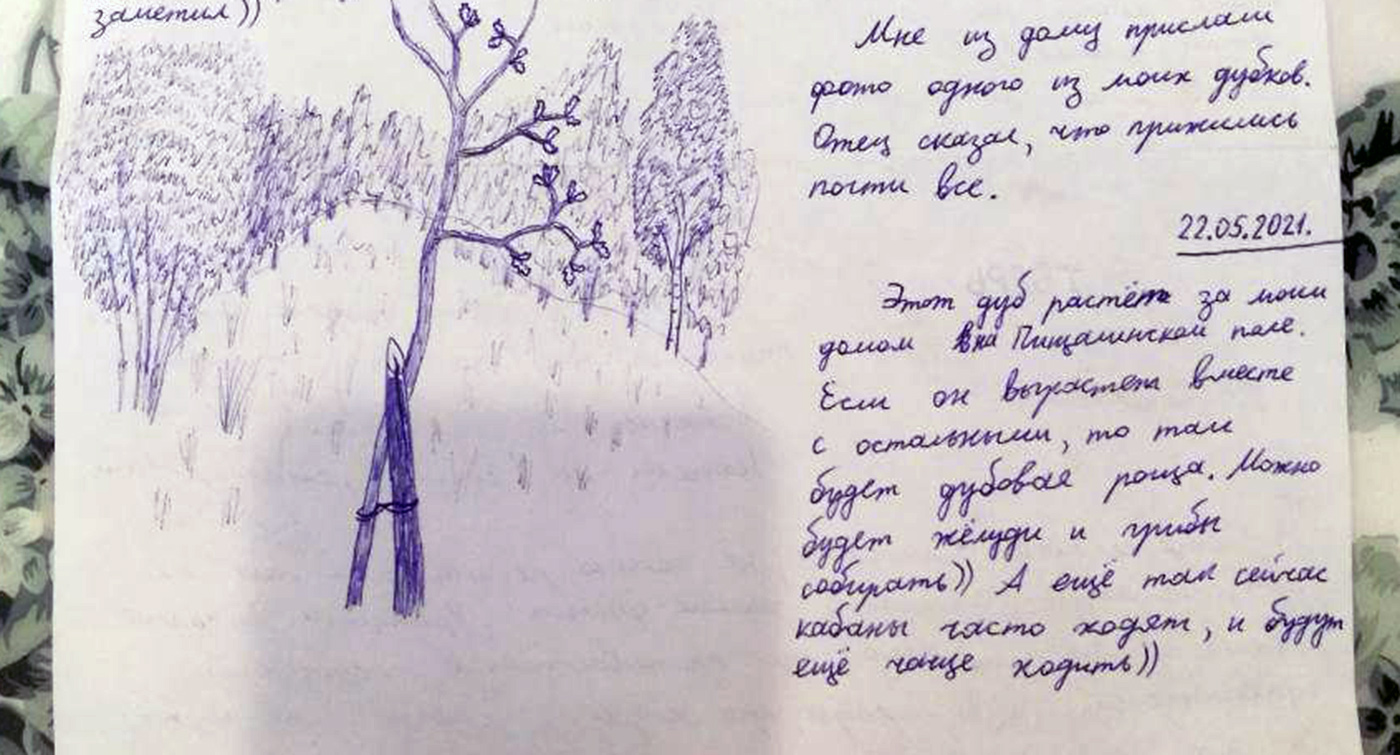 заметил))
Мне из дому прислали
фото одного из моих дубков.
Отец сказал, что прижились
почти все.
22.05.2021.
Этот дуб растёт за моим
домом на Пищалинском поле.
Если он вырастет вместе
с остальными, то там
будет дубовая роща. Можно
будет жёлуди и грибы
собирать)) А ещё там сейчас
кабаны часто ходят, и будут
ещё чаще ходить))